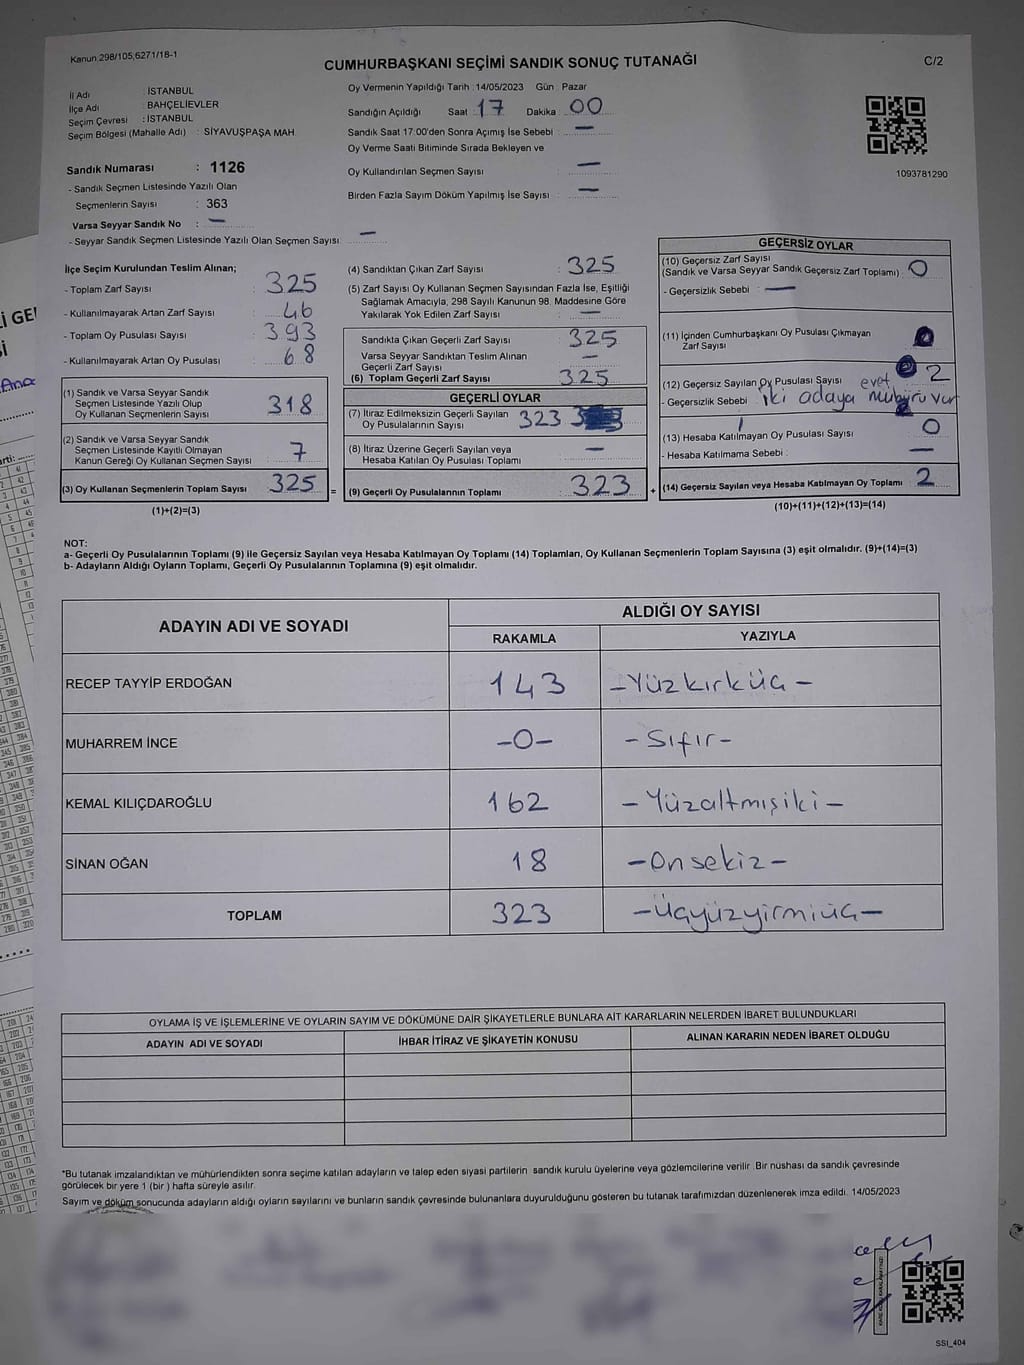 Kanun,298/105,6271/18-1
CUMHURBAŞKANI SEÇİMİ SANDIK SONUÇ TUTANAĞI
C/2
İl Adı : İSTANBUL
İlçe Adı : BAHÇELİEVLER
Seçim Çevresi : İSTANBUL
Seçim Bölgesi (Mahalle Adı) : SİYAVUŞPAŞA MAH
Oy Vermenin Yapıldığı Tarih : 14/05/2023 Gün : Pazar
Sandığın Açıldığı Saat : 17 Dakika : 00
Sandık Saat 17:00'den Sonra Açımış İse Sebebi : —
Oy Verme Saati Bitiminde Sırada Bekleyen ve
Oy Kullandırılan Seçmen Sayısı : —
Birden Fazla Sayım Döküm Yapılmış İse Sayısı : —
1093781290
Sandık Numarası : 1126
- Sandık Seçmen Listesinde Yazılı Olan
Seçmenlerin Sayısı : 363
Varsa Seyyar Sandık No : —
- Seyyar Sandık Seçmen Listesinde Yazılı Olan Seçmen Sayısı : —
İlçe Seçim Kurulundan Teslim Alınan;
- Toplam Zarf Sayısı : 325
- Kullanılmayarak Artan Zarf Sayısı : 46
- Toplam Oy Pusulası Sayısı : 393
- Kullanılmayarak Artan Oy Pusulası : 68
(1) Sandık ve Varsa Seyyar Sandık
Seçmen Listesinde Yazılı Olup
Oy Kullanan Seçmenlerin Sayısı : 318
(2) Sandık ve Varsa Seyyar Sandık
Seçmen Listesinde Kayıtlı Olmayan
Kanun Gereği Oy Kullanan Seçmen Sayısı : 7
(3) Oy Kullanan Seçmenlerin Toplam Sayısı : 325 =
(1)+(2)=(3)
(4) Sandıktan Çıkan Zarf Sayısı : 325
(5) Zarf Sayısı Oy Kullanan Seçmen Sayısından Fazla İse, Eşitliği
Sağlamak Amacıyla, 298 Sayılı Kanunun 98. Maddesine Göre
Yakılarak Yok Edilen Zarf Sayısı : —
Sandıkta Çıkan Geçerli Zarf Sayısı : 325
Varsa Seyyar Sandıktan Teslim Alınan
Geçerli Zarf Sayısı : —
(6) Toplam Geçerli Zarf Sayısı : 325
GEÇERLİ OYLAR
(7) İtiraz Edilmeksizin Geçerli Sayılan
Oy Pusulalarının Sayısı : 323
(8) İtiraz Üzerine Geçerli Sayılan veya
Hesaba Katılan Oy Pusulası Toplamı : —
(9) Geçerli Oy Pusulalarının Toplamı : 323 +
GEÇERSİZ OYLAR
(10) Geçersiz Zarf Sayısı
(Sandık ve Varsa Seyyar Sandık Geçersiz Zarf Toplamı) : 0
- Geçersizlik Sebebi : —
(11) İçinden Cumhurbaşkanı Oy Pusulası Çıkmayan
Zarf Sayısı
(12) Geçersiz Sayılan Oy Pusulası Sayısı evet 2
- Geçersizlik Sebebi : iki adaya mühürü var
(13) Hesaba Katılmayan Oy Pusulası Sayısı : 0
- Hesaba Katılmama Sebebi : —
(14) Geçersiz Sayılan veya Hesaba Katılmayan Oy Toplamı : 2
(10)+(11)+(12)+(13)=(14)
NOT:
a- Geçerli Oy Pusulalarının Toplamı (9) ile Geçersiz Sayılan veya Hesaba Katılmayan Oy Toplamı (14) Toplamları, Oy Kullanan Seçmenlerin Toplam Sayısına (3) eşit olmalıdır. (9)+(14)=(3)
b- Adayların Aldığı Oyların Toplamı, Geçerli Oy Pusulalarının Toplamına (9) eşit olmalıdır.
ADAYIN ADI VE SOYADI
ALDIĞI OY SAYISI
RAKAMLA YAZIYLA
RECEP TAYYİP ERDOĞAN 143 -Yüzkırküç-
MUHARREM İNCE -0- -Sıfır-
KEMAL KILIÇDAROĞLU 162 -Yüzaltmışiki-
SİNAN OĞAN 18 -Onsekiz-
TOPLAM 323 -Üçyüzyirmiüç-
OYLAMA İŞ VE İŞLEMLERİNE VE OYLARIN SAYIM VE DÖKÜMÜNE DAİR ŞİKAYETLERLE BUNLARA AİT KARARLARIN NELERDEN İBARET BULUNDUKLARI
ADAYIN ADI VE SOYADI İHBAR İTİRAZ VE ŞİKAYETİN KONUSU ALINAN KARARIN NEDEN İBARET OLDUĞU
*Bu tutanak imzalandıktan ve mühürlendikten sonra seçime katılan adayların ve talep eden siyasi partilerin sandık kurulu üyelerine veya gözlemcilerine verilir. Bir nüshası da sandık çevresinde
görülecek bir yere 1 (bir ) hafta süreyle asılır.
Sayım ve döküm sonucunda adayların aldığı oyların sayılarını ve bunların sandık çevresinde bulunanlara duyurulduğunu gösteren bu tutanak tarafımızdan düzenlenerek imza edildi. 14/05/2023
SSI_404